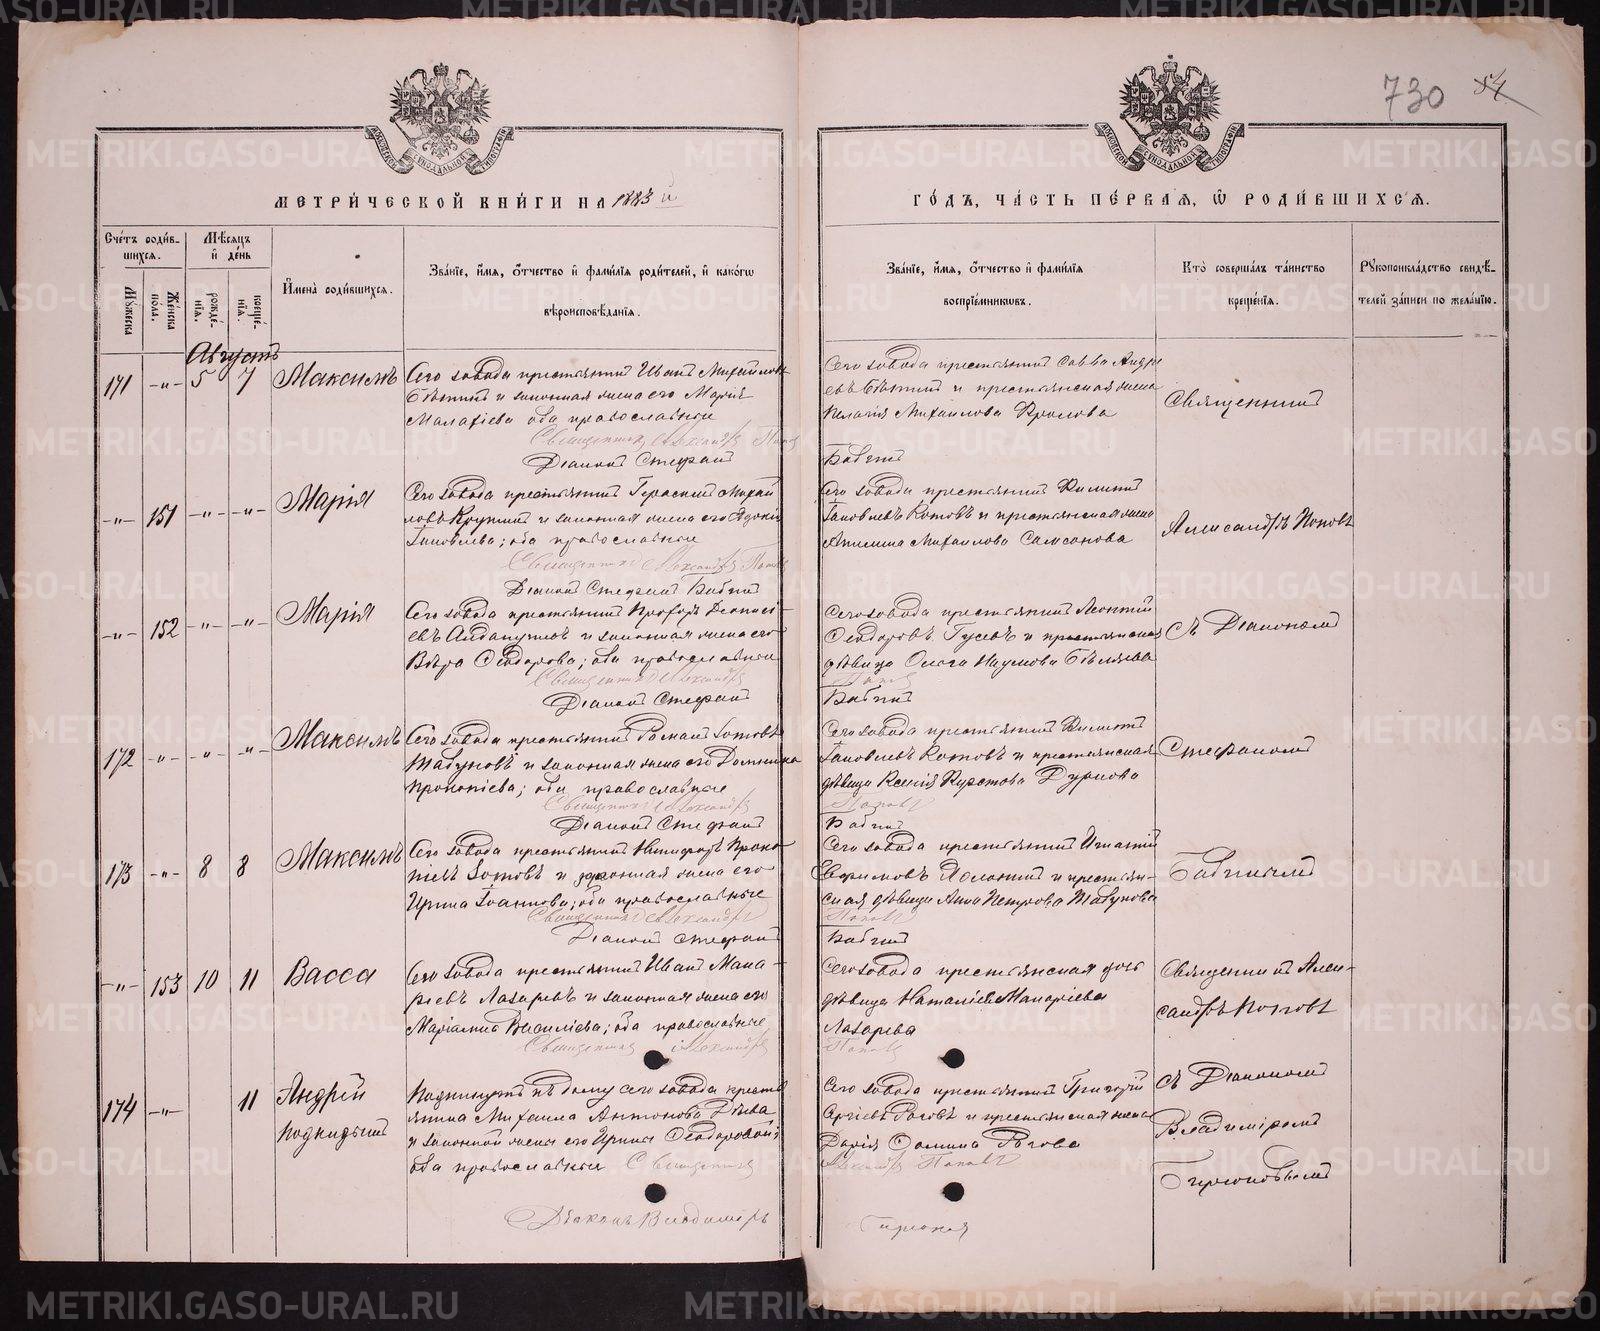 730 54
МЕТРИ́ЧЕСКОЙ КНИ́ГИ НА 1883 й
ГО́ДЪ, ЧА́СТЬ ПЕ́РВАЯ, Ѽ РОДИ́ВШИХСЯ.
Сче́тъ роди́в-
шихся.
Му́жеска
Же́нска
по́ла.
Мѣ́сяцъ
и҆ де́нь
рожде́-
нїя.
креще́-
нїя.
И҆мена̀ роди́вшихся.
Зва́нїе, и҆́мя, ѻ҆́тчество и҆ фами́лїя роди́телей, и҆ како́гѡ
вѣроисповѣ́данїя.
Зва́нїе, и҆́мя, ѻ҆́тчество и҆ фами́лїя
воспрїе́мниковъ.
Кто̀ соверша́лъ та́инство
креще́нїя.
Рꙋкоприкла́дство свидѣ́-
телей за́писи по жела́нїю.
Августъ
171 -„- 5 7 Максимъ
Сего завода крестьянинъ Иванъ Михайловъ
и законная жена его Марія
Малафіева оба православные
Священникъ Александръ Поповъ
Діаконъ Стефанъ
Сего завода крестьянинъ Савва Андре
евъ и крестьянская жена
Пелагія Михаилова Крюлова
Бабкинъ
Священникъ
-„- 151 -„- -„- Марія
Сего завода крестьянинъ Герасимъ Михаи
ловъ и законная жена его
Іаковлева; оба православные
Священникъ Александръ Поповъ
Діаконъ Стефанъ Бабкинъ
Сего завода крестьянинъ Филиппъ
Іаковлевъ Котовъ и крестьянская жена
Михаилова Самсонова
Александръ Поповъ
-„- 152 -„- -„- Марія
Сего завода крестьянинъ
и законная жена его
Вѣра Ѳеодорова; оба православные
Священникъ Александръ
Діаконъ Стефанъ
Сего завода крестьянинъ Леонтій
Ѳеодоровъ Гусевъ и крестьянская
дѣвица Ольга Наумова Бѣляева
Поповъ
Бабкинъ
съ Діакономъ
172 -„- -„- -„- Максимъ
Сего завода крестьянинъ Романъ Зотовъ
Табуновъ и законная жена его Домника
Прокопіева; оба православные
Священникъ Александръ
Діаконъ Стефанъ
Сего завода крестьянинъ Филиппъ
Іаковлевъ Котовъ и крестьянская
дѣвица Ксенія Дурнова
Поповъ
Бабкинъ
Стефаномъ
173 -„- 8 8 Максимъ
Сего завода крестьянинъ Никифоръ Проко
піевъ Зотовъ и законная жена его
Ирина Іоаннова; оба православные
Священникъ Александръ
Діаконъ Стефанъ
Сего завода крестьянинъ Игнатій
Ефимовъ и крестьян-
ская дѣвица Анна Петрова Табунова
Поповъ
Бабкинъ
Бабкинымъ
-„- 153 10 11 Васса
Сего завода крестьянинъ Иванъ Мака-
ріевъ Лазаревъ и законная жена его
Маріанна Василіева; оба православные
Священникъ Александръ
Сего завода крестьянская дочь
дѣвица Наталія Макаріева
Лазарева
Поповъ
Священникъ Алек-
сандръ Поповъ
174 -„- 11 Андрей
подкидышъ
Подкинутъ къ дому сего завода кресть
янина Михаила Антонова
и законной жены его Ирины Ѳеодоровой;
оба православные Священникъ
Діаконъ Владимиръ
Сего завода крестьянинъ Григорій
Сергіевъ Роговъ и крестьянская жена
Дарія Рогова
Александръ Поповъ
съ Діакономъ
Владиміромъ
METRIKI.GASO-URAL.RU